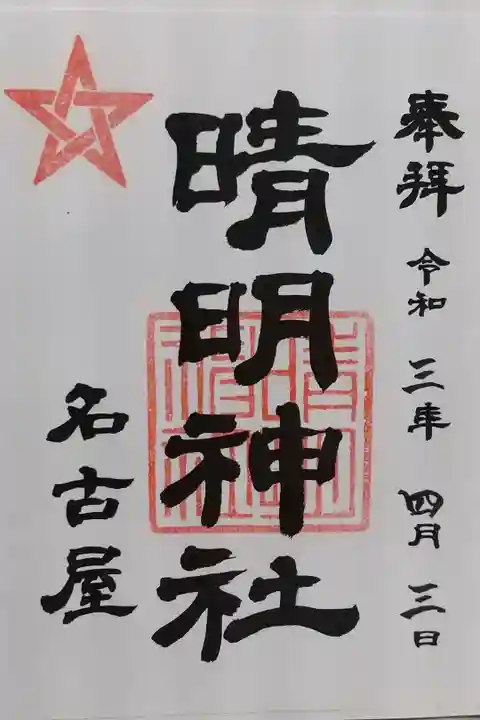 奉拝 令和三年四月三日
晴明神社
名古屋
晴明神社